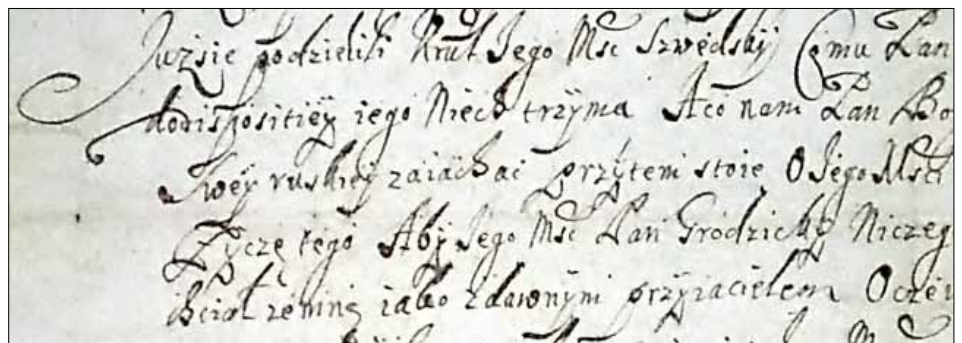 Juzsie podzielili Krul Jego Msc Szwedskÿ Czmu Pan
dodispositieÿ iego Niech trzÿma Aco nam Pan Bog
Sweÿ ruskieÿ zaiachac przÿtem stoie O Jego Msci
Zÿczę tego Abÿ Jego Msc Pan Grodzickÿ Niczeg
chciał zemną iako zdawnÿm przÿiacielem Oczei